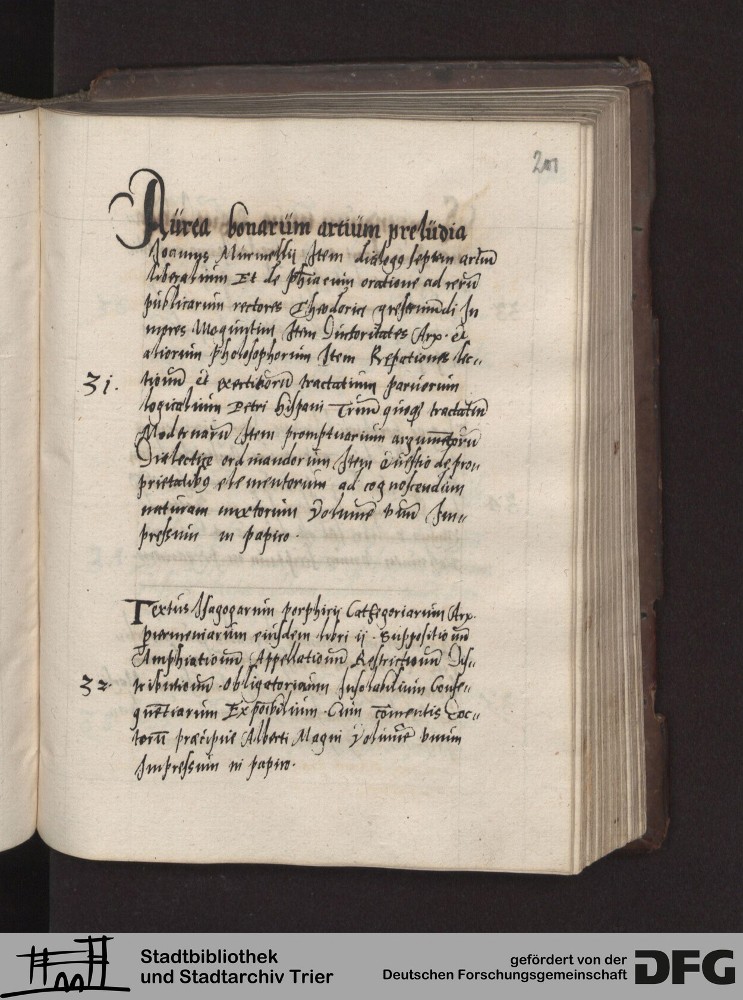 201
Aurea bonarum artium preludia
Joannis Murmellii Item dialogo septem artiū
liberalium Et de phiae cum oratione ad rerū
publicarum rectores Theodorici gresemundi Ju
nioris Maguntini Item Autoritates Arx. et
aliorum pholosophorum Item Reparationes lec,,
31. tionū et exercitiorū tractatuum paruorum
logicalium Petri hispani Trium quoqz tractatuū
Modernarū Item promptuarium argumētorū
Dialectice ordinandorum Item Questio de pro,,
prietatibus elementorum ad cognoscendum
naturam mixtorum Volumē vnū Im,,
pressum in papiro.
Textus Isagogarum porphirij Cathegoriarum Arx.
periermeniarum eiusdem libri ij. Suppositionū
Amphiationū Appellationū Restrictionum Dis,,
32. tributionū. Obligatoriorum Insolubilium Conse,,
quentiarum Exponibilium. Cum comentis Doc,,
torū precipue Alberti Magni Volumē vnum
Impressum in papiro.
Stadtbibliothek
und Stadtarchiv Trier
gefördert von der
Deutschen Forschungsgemeinschaft
DFG